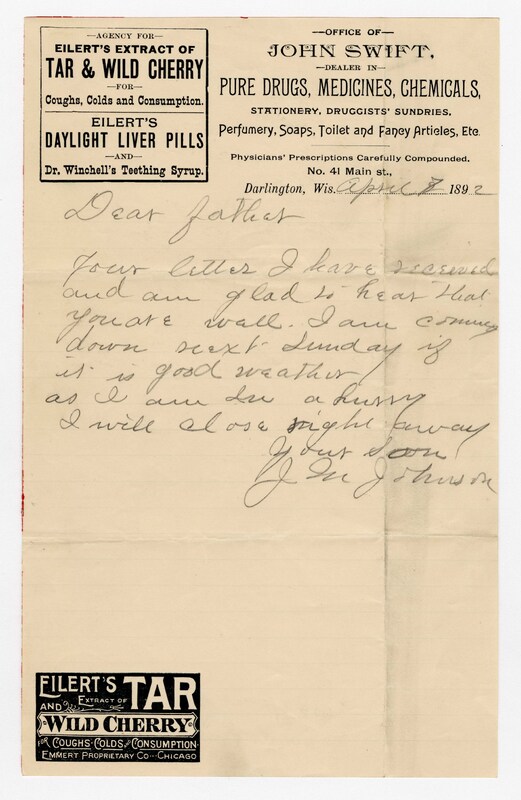 —AGENCY FOR—
EILERT'S EXTRACT OF
TAR & WILD CHERRY
—FOR—
Coughs, Colds and Consumption.
EILERT'S
DAYLIGHT LIVER PILLS
—AND—
Dr. Winchell's Teething Syrup.
—OFFICE OF—
JOHN SWIFT,
—DEALER IN—
PURE DRUGS, MEDICINES, CHEMICALS,
STATIONERY, DRUGGISTS' SUNDRIES,
Perfumery, Soaps, Toilet and Fancy Articles, Etc.
Physicians' Prescriptions Carefully Compounded.
No. 41 Main st.,
Darlington, Wis. April 7 1892
Dear father
Your letter I have received
and am glad to hear that
you are well. I am coming
down next Sunday if
it is good weather
as I am in a hurry
I will close right away
Your Son
J M Johnson
EILERT'S
EXTRACT OF
TAR
AND
WILD CHERRY
FOR COUGHS-COLDS AND CONSUMPTION.
EMMERT PROPRIETARY CO--CHICAGO